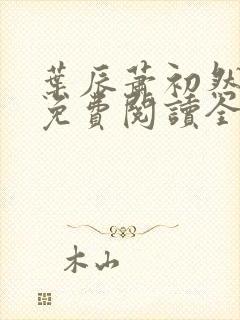 葉辰蕭初然
免費閱讀全
木山